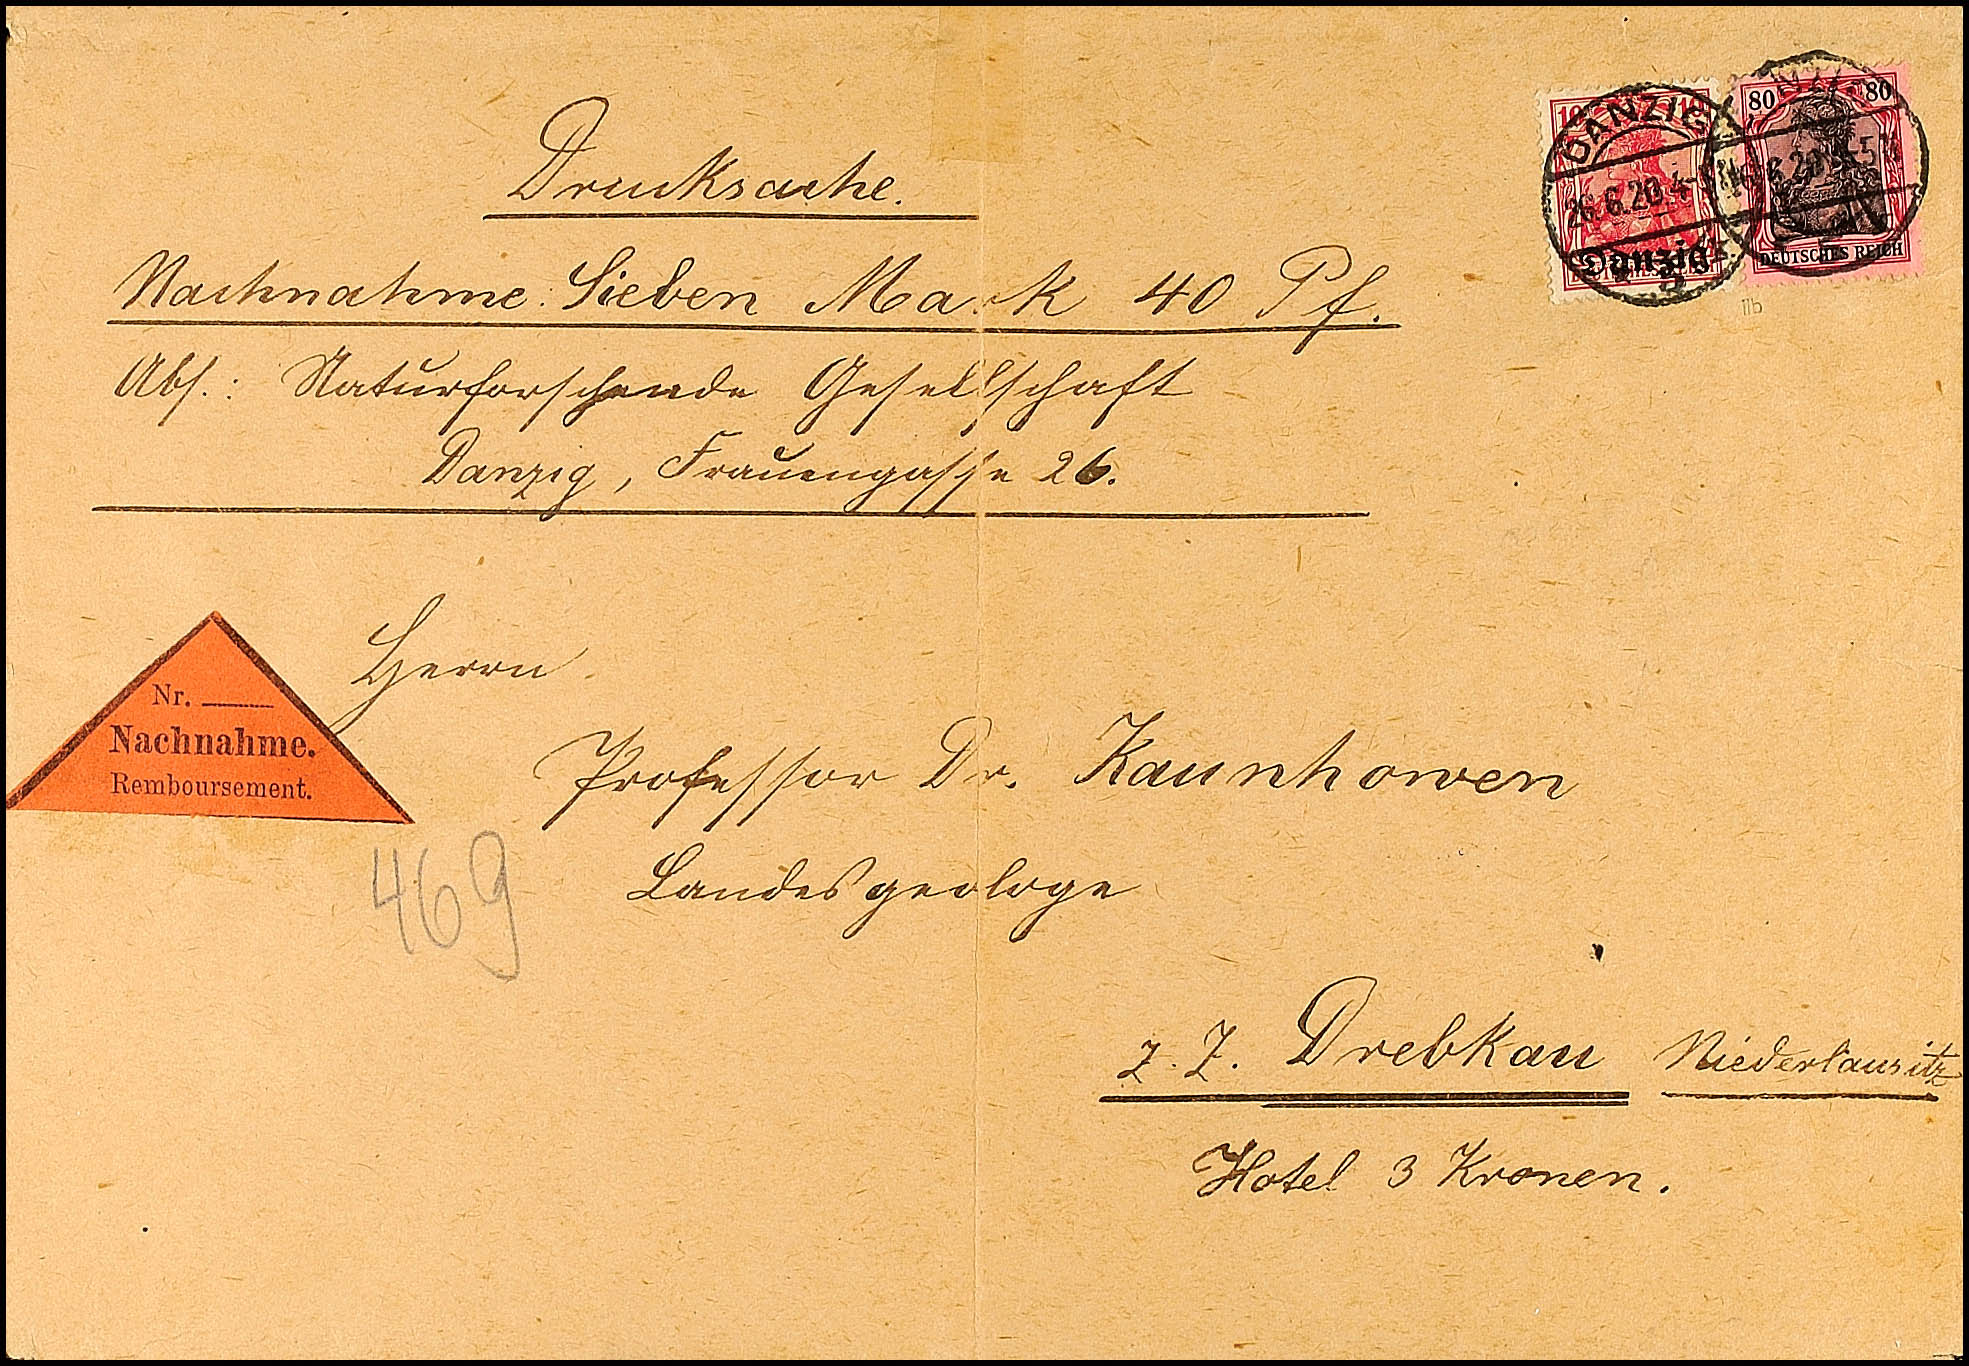 Drucksache.
Nachnahme: Sieben Mark 40 Pf.
Abs.: Naturforschende Gesellschaft
Danzig, Frauengasse 26.
10 10
80 80
DANZIG
26.6.20.4-5
6.20 4-5 N
Danzig
DEUTSCHES REICH
IIb
Nr.
Nachnahme.
Remboursement.
469
Herrn
Professor Dr. Kaunhowen
Landesgeologe
z. Z. Drebkau Niederlausitz
Hotel 3 Kronen.